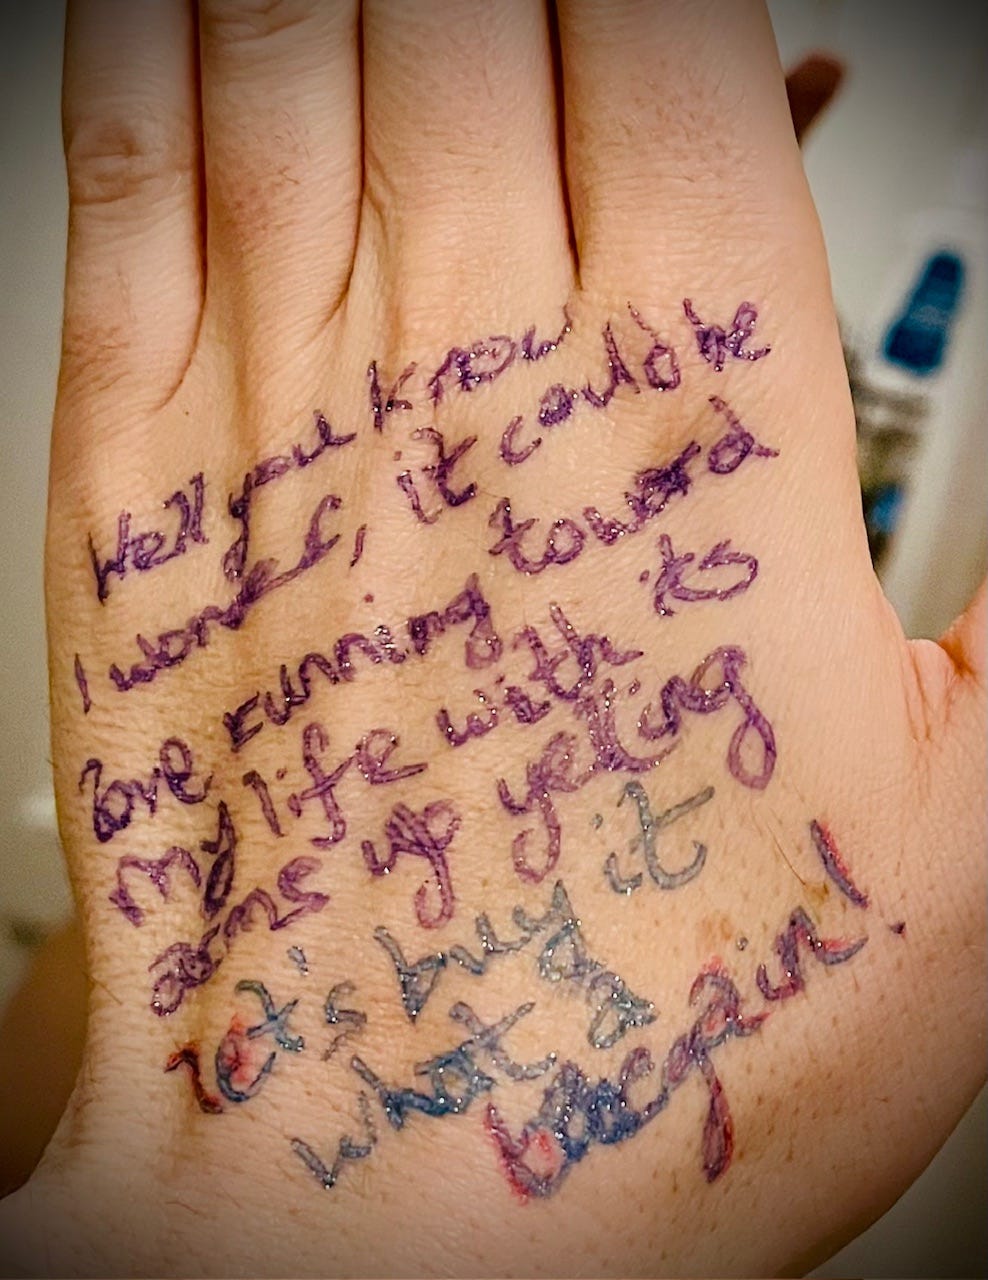 Well you know
I wonder, it could be
love running toward
my life with its
arms up yelling
let's buy it
what a
bargain!